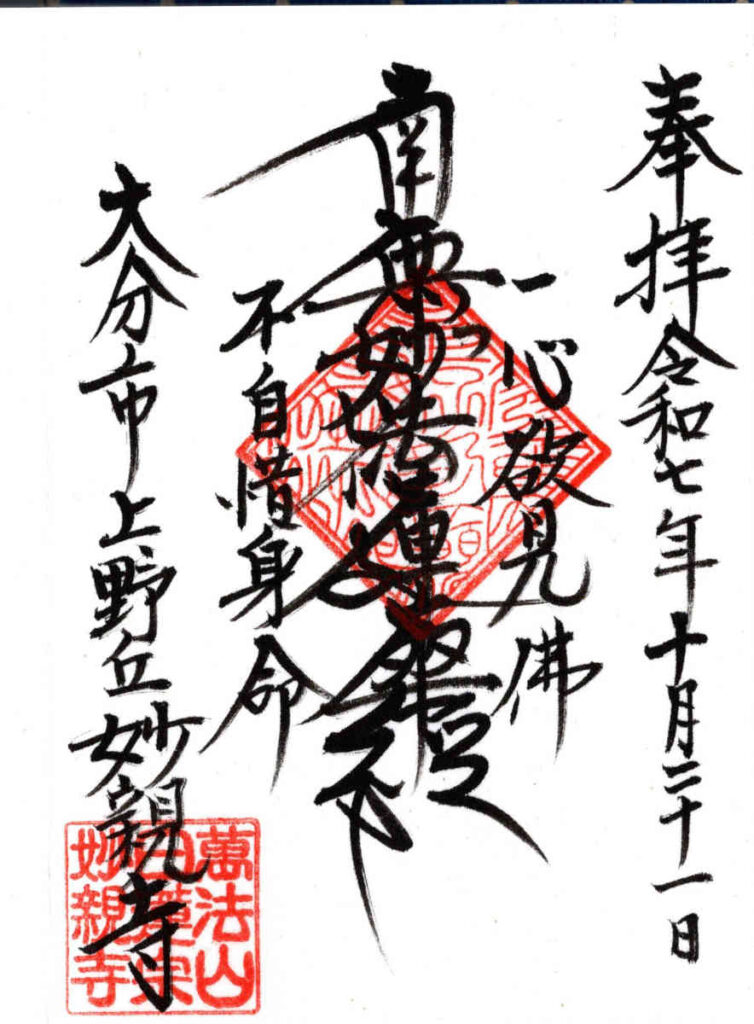 奉拝 令和七年十月二十一日
一心欲見佛
南無妙法蓮華経
不自惜身命
大分市上野丘 妙親寺
萬法山
日蓮宗
妙親寺